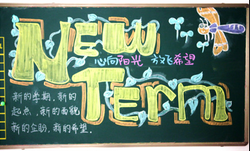 New
心向阳光 放飞希望
Term
新的学期，新的
起点，新的面貌
新的互动，新的希望。